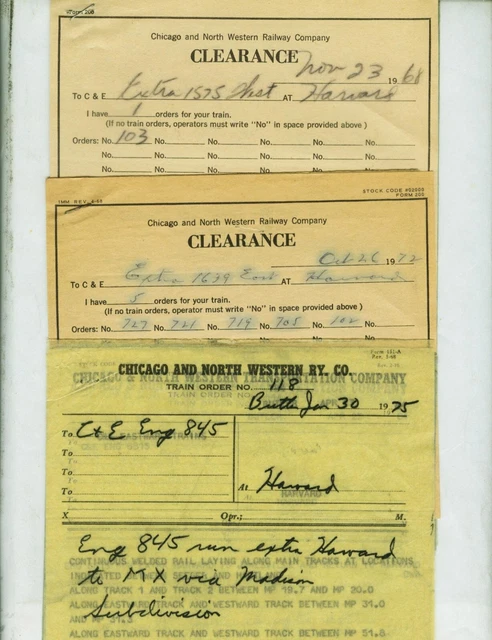 Form 200
Chicago and North Western Railway Company
CLEARANCE
Nov 23 1968
To C & E Extra 1575 West AT Harvard
I have 1 orders for your train.
(If no train orders, operators must write "No" in space provided above)
Orders: No. 103 No. No. No. No. No.
No. No. No. No. No. No.
No. No. No. No. No. No.
STOCK CODE
1MM REV. FORM 200
Chicago and North Western Railway Company
CLEARANCE
Oct 26 1972
To C & E Extra 1639 East AT Harvard
I have 5 orders for your train.
(If no train orders, operators must write "No" in space provided above)
Orders: No. 727 No. 721 No. 719 No. 705 No. 102 No.
CHICAGO AND NORTH WESTERN RY. CO.
CHICAGO & NORTH WESTERN TRANSPORTATION COMPANY
TRAIN ORDER NO. 118
Butler Jan 30 1975
To C+E Eng 845
To
To
To
At Harvard
HARVARD
X Opr.; M.
Eng 845 run extra Harvard
CONTINUOUS WELDED RAIL LAYING ALONG MAIN TRACKS AT LOCATIONS
to MX via Madison
ALONG TRACK 1 AND TRACK 2 BETWEEN MP 19.7 AND MP 20.0
ALONG EASTWARD TRACK AND WESTWARD TRACK BETWEEN MP 31.0
Subdivision
AND MP
ALONG EASTWARD TRACK AND WESTWARD TRACK BETWEEN MP 51.8